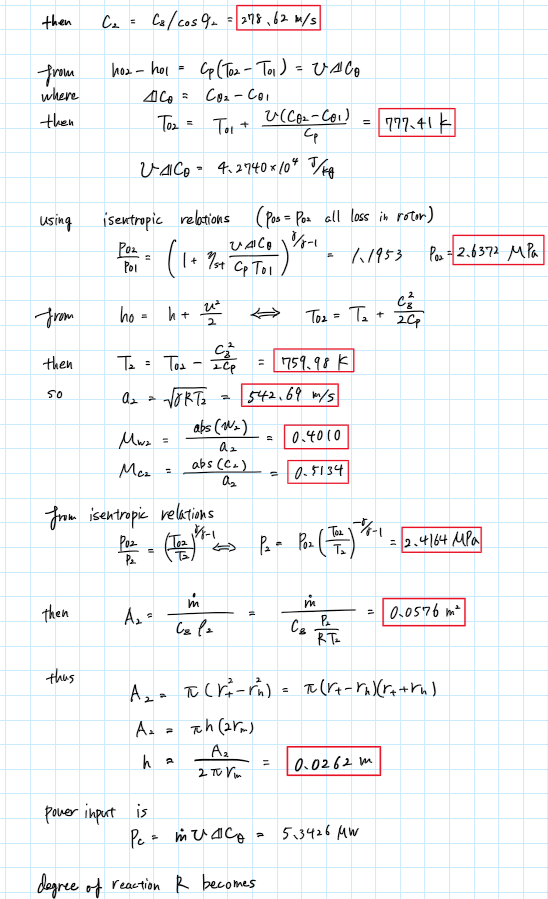 then C₂ = C₃/cos φ₂ = 278.62 m/s
from h₀₂ - h₀₁ = Cp(T₀₂ - T₀₁) = U ΔCθ
where ΔCθ = Cθ₂ - Cθ₁
then T₀₂ = T₀₁ + U(Cθ₂ - Cθ₁)/Cp = 777.41 K
U ΔCθ = 4.2740×10⁴ J/kg
using isentropic relations (P₀₃ = P₀₂ all loss in rotor)
P₀₂/P₀₁ = (1 + ηst U ΔCθ/(Cp T₀₁))^(γ/γ-1) = 1.1953 P₀₂ = 2.6372 MPa
from h₀ = h + u²/2 ⟺ T₀₂ = T₂ + C₃²/2Cp
then T₂ = T₀₂ - C₃²/2Cp = 759.98 K
so a₂ = √γRT₂ = 542.69 m/s
Mw₂ = abs(w₂)/a₂ = 0.4010
Mc₂ = abs(c₂)/a₂ = 0.5134
from isentropic relations
P₀₂/P₂ = (T₀₂/T₂)^(γ/γ-1) ⟺ P₂ = P₀₂ (T₀₂/T₂)^(-γ/γ-1) = 2.4164 MPa
then A₂ = ṁ/(C₃ ρ₂) = ṁ/(C₃ P₂/RT₂) = 0.0576 m²
thus
A₂ = π(r_t² - r_h²) = π(r_t - r_h)(r_t + r_h)
A₂ = πh(2r_m)
h = A₂/2πr_m = 0.0262 m
power input is
Pc = ṁ U ΔCθ = 5.3426 MW
degree of reaction R becomes